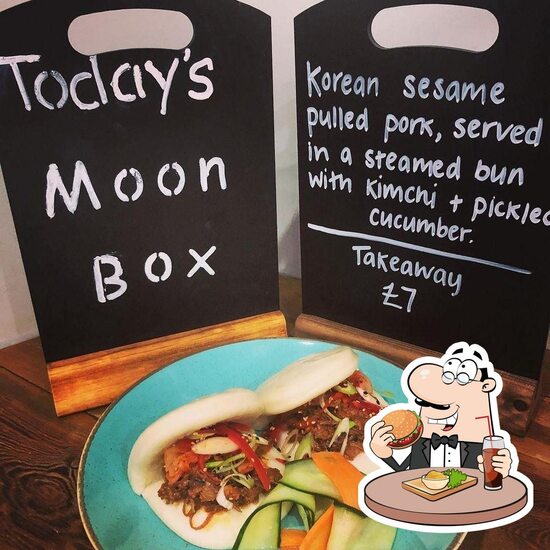 Today's
Moon
Box
Korean sesame
pulled pork, served
in a steamed bun
with kimchi + pickled
cucumber.
Takeaway
£7